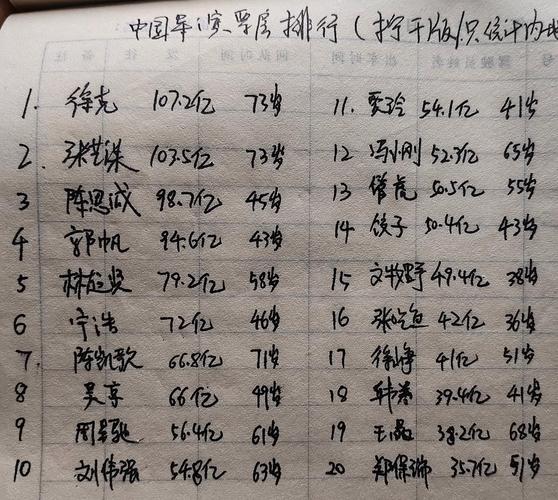 中国导演票房排行（拧干版/只统计内地
1. 徐克 107.2亿 73岁
2. 张艺谋 103.5亿 73岁
3 陈思诚 98.7亿 45岁
4 郭帆 94.6亿 43岁
5 林超贤 79.2亿 58岁
6 宁浩 72亿 46岁
7. 陈凯歌 66.8亿 71岁
8 吴京 66亿 49岁
9 周星驰 56.4亿 61岁
10 刘伟强 54.8亿 63岁
11. 贾玲 54.1亿 41岁
12 冯小刚 52.3亿 65岁
13 管虎 50.5亿 55岁
14 饺子 50.4亿 43岁
15 文牧野 49.4亿 38岁
16 张吃鱼 42亿 36岁
17 徐峥 41亿 51岁
18 韩寒 39.4亿 41岁
19 王晶 38.2亿 68岁
20 郑保瑞 35.7亿 51岁